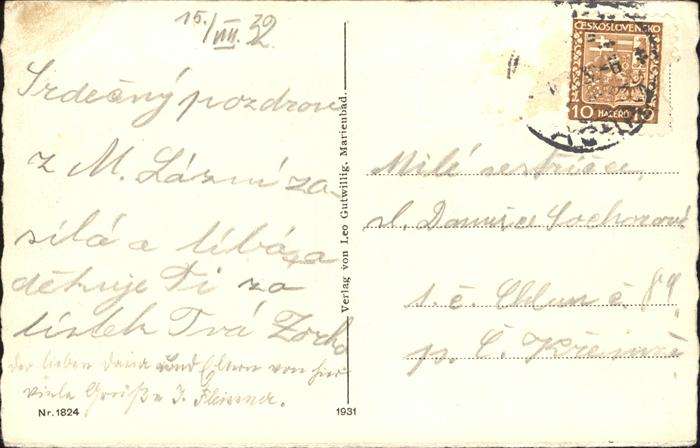 15./VII. 32
Srdečný pozdrav
z M. Lázní za-
sílá a líbá a
děkuje Ti za
lístek Tvá Zorka
der lieben Dana und Eltern von hier
viele Grüße J.
Nr. 1824
1931
Verlag von Leo Gutwillig, Marienbad.
ČESKOSLOVENSKO
10 HALÉŘŮ 10
Milé sestřičce,
sl. Danuše Sochorové
t. č. Chlum č. 89
p. Č.